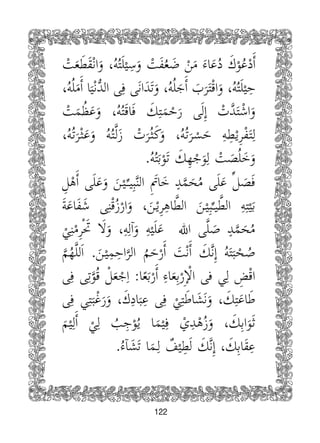 أَدْعُوْكَ دُعَاءَ مَنْ ضَعُفَتْ وَسِيْلَتُهُ، وَانْقَطَعَتْ
حِيْلَتُهُ، وَاقْتَرَبَ أَجَلُهُ، وَتَدَانَى فِى الدُّنْيَا أَمَلُهُ،
وَاشْتَدَّتْ إِلَى رَحْمَتِكَ فَاقَتُهُ، وَعَظُمَتْ
لِتَفْرِيْطِهِ حَسْرَتُهُ، وَكَثُرَتْ زَلَّتُهُ وَعَثْرَتُهُ،
وَخَلُصَتْ لِوَجْهِكَ تَوْبَتُهُ.
فَصَلِّ عَلَى مُحَمَّدٍ خَاتَمِ النَّبِيِّيْنَ وَعَلَى أَهْلِ
بَيْتِهِ الطَّيِّبِيْنَ الطَّاهِرِيْنَ، وَارْزُقْنِى شَفَاعَةَ
مُحَمَّدٍ صَلَّى الله عَلَيْهِ وَآلِهِ، وَلَا تَحْرِمْنِيْ
صُحْبَتَهُ إِنَّكَ أَنْتَ أَرْحَمُ الرَّاحِمِيْنَ. اَللّٰهُمَّ
اقْضِ لِي فى الْأَرْبِعَاءِ أَرْبَعًا: اِجْعَلْ قُوَّتِى فِى
طَاعَتِكَ، وَنَشَاطَتِيْ فِى عِبَادِكَ، وَرَغْبَتِي فِى
ثَوَابِكَ، وَزُهْدِيْ فِيْمَا يُوْجِبُ لِيْ أَلِيْمَ
عِقَابِكَ، إِنَّكَ لَطِيْفٌ لِمَا تَشَآءُ.
122